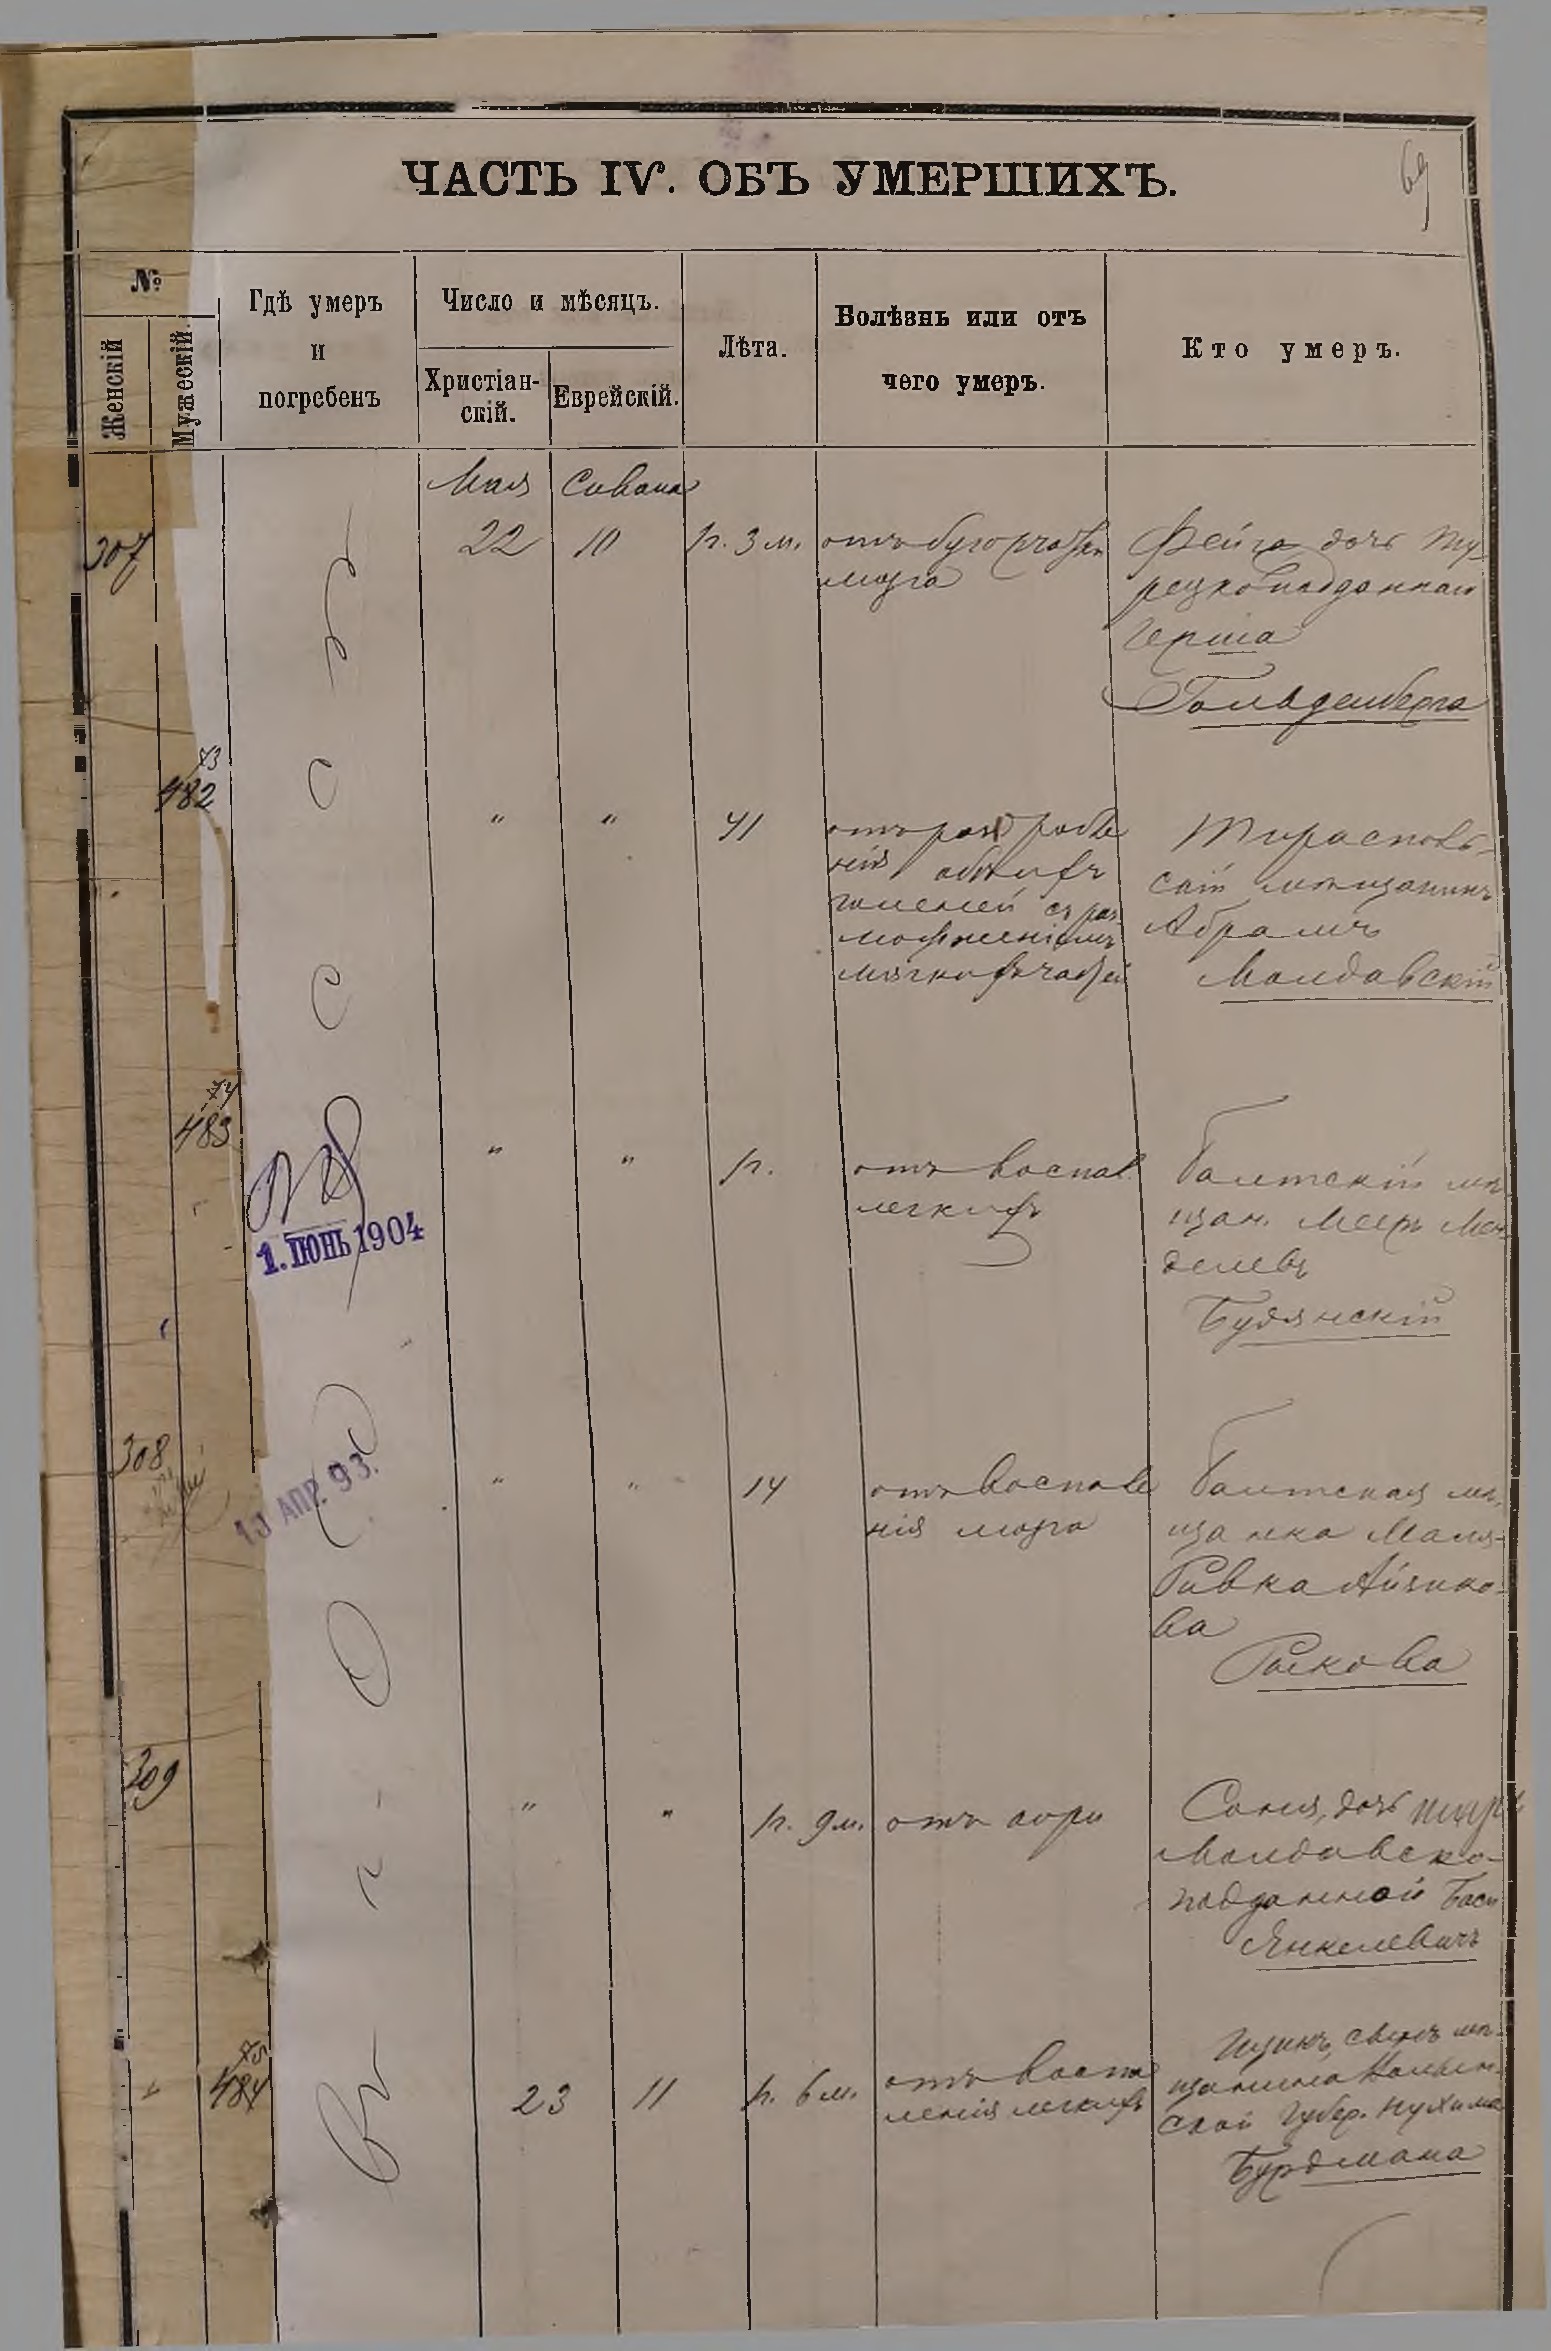 69
ЧАСТЬ IV. ОБЪ УМЕРШИХЪ.
№
Женскій
Мужескій.
Гдѣ умеръ
и
погребенъ
Число и мѣсяцъ.
Христіан-
скій.
Еврейскій.
Лѣта.
Болѣзнь или отъ
чего умеръ.
Кто умеръ.
Мая Сивана
307 22 10 1 г. 3 м. отъ бугорчатки
мозга
Фейга дочь ту-
рецкоподданнаго
Герша
Гольденберга
73
482 " " 41 отъ раздробле
нія обѣихъ
голеней съ раз-
мозженіемъ
мягкихъ частей
Тирасполь-
скій мѣщанинъ
Абрамъ
Молдавскій
74
483 " " 1 г. отъ воспал.
легкихъ
Балтскій мѣ-
щан. Мееръ Мен-
делевъ
Будянскій
1. ІЮНЬ 1904
308 " " 14 отъ воспале
нія мозга
Балтская мѣ-
щанка Маля-
Ривка Айзико-
ва
13 АПР. 93.
309 " " 1 г. 9 м. отъ кори
Соня, дочь
Молдавско-
подданной Баси
Янкелевичъ
75
484 23 11 1 г. 6 м. отъ воспа
ленія легкихъ
Ицикъ, сынъ мѣ-
щанина Волын-
ской губер. Нухима
Бурдмана
Въ Одессѣ